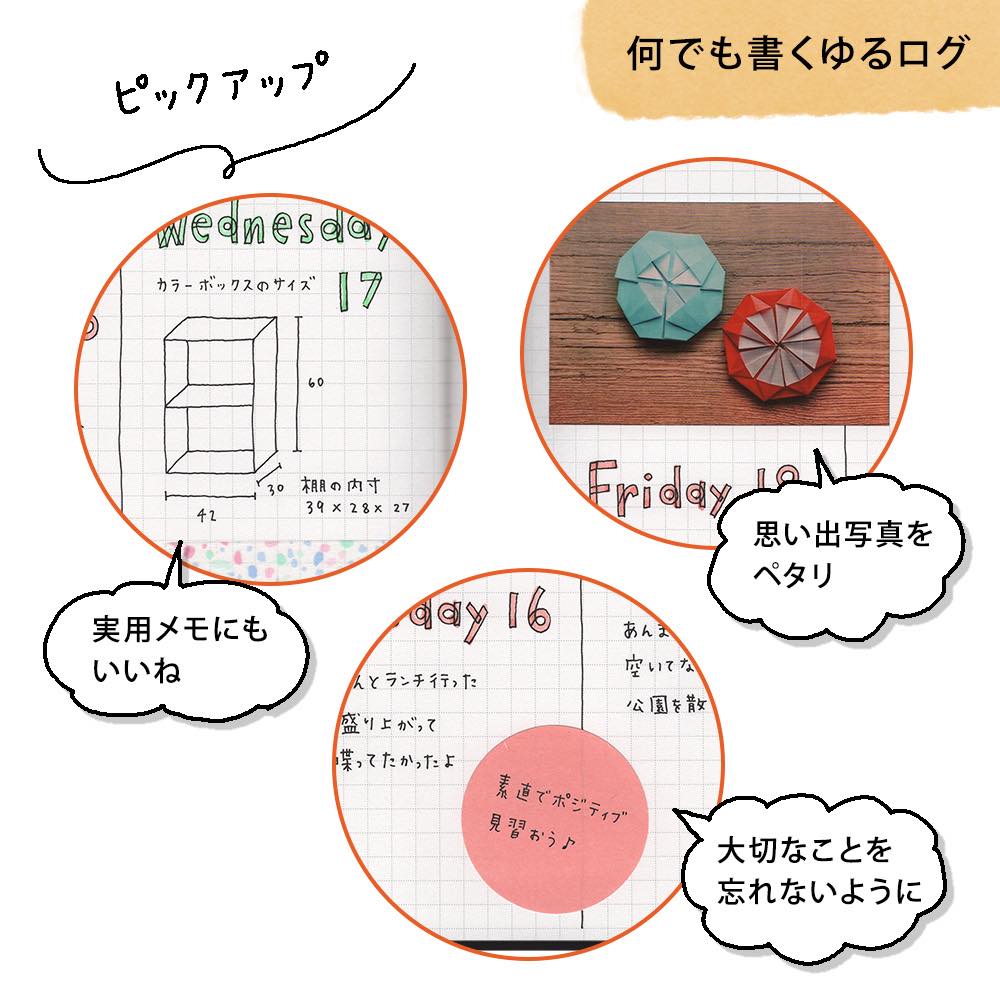 何でも書くゆるログ
ピックアップ
Wednesday
17
カラーボックスのサイズ
60
30
42
棚の内寸
39 × 28 × 27
実用メモにも
いいね
Friday
思い出写真を
ペタリ
day 16
んとランチ行った
盛り上がって
喋ってたかったよ
あんま
空いてな
公園を散
素直でポジティブ
見習おう♪
大切なことを
忘れないように